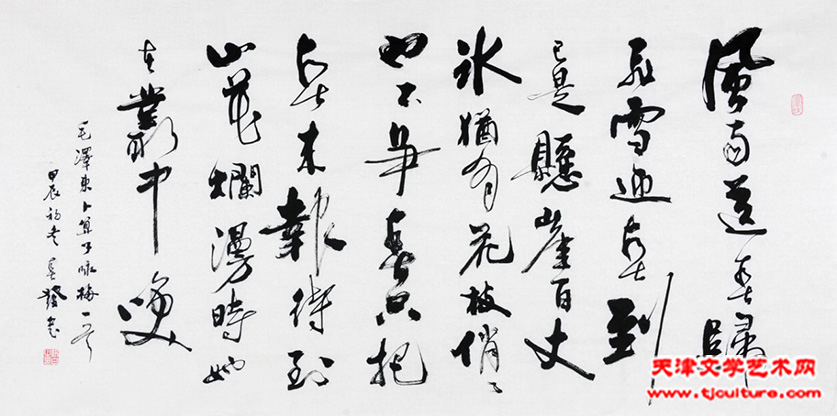 風雨送春歸
飛雪迎春到
已是懸崖百丈
冰猶有花枝俏々
也不爭春只把
春來報待到
山花爛漫時她
在叢中咲
毛澤東卜算子咏梅一首
甲辰
天津文学艺术网
www.tjculture.com